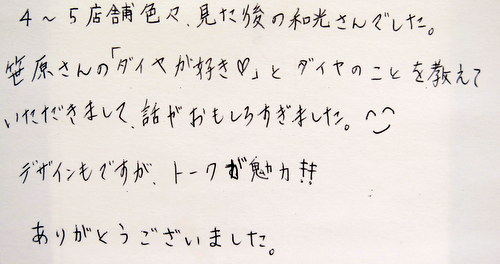 4〜5店舗色々、見た後の和光さんでした。
笹原さんの「ダイヤが好き♡」と ダイヤのことを教えて
いただきまして、話がおもしろすぎました。^‿^
デザインもですが、トークが魅力!!
ありがとうございました。